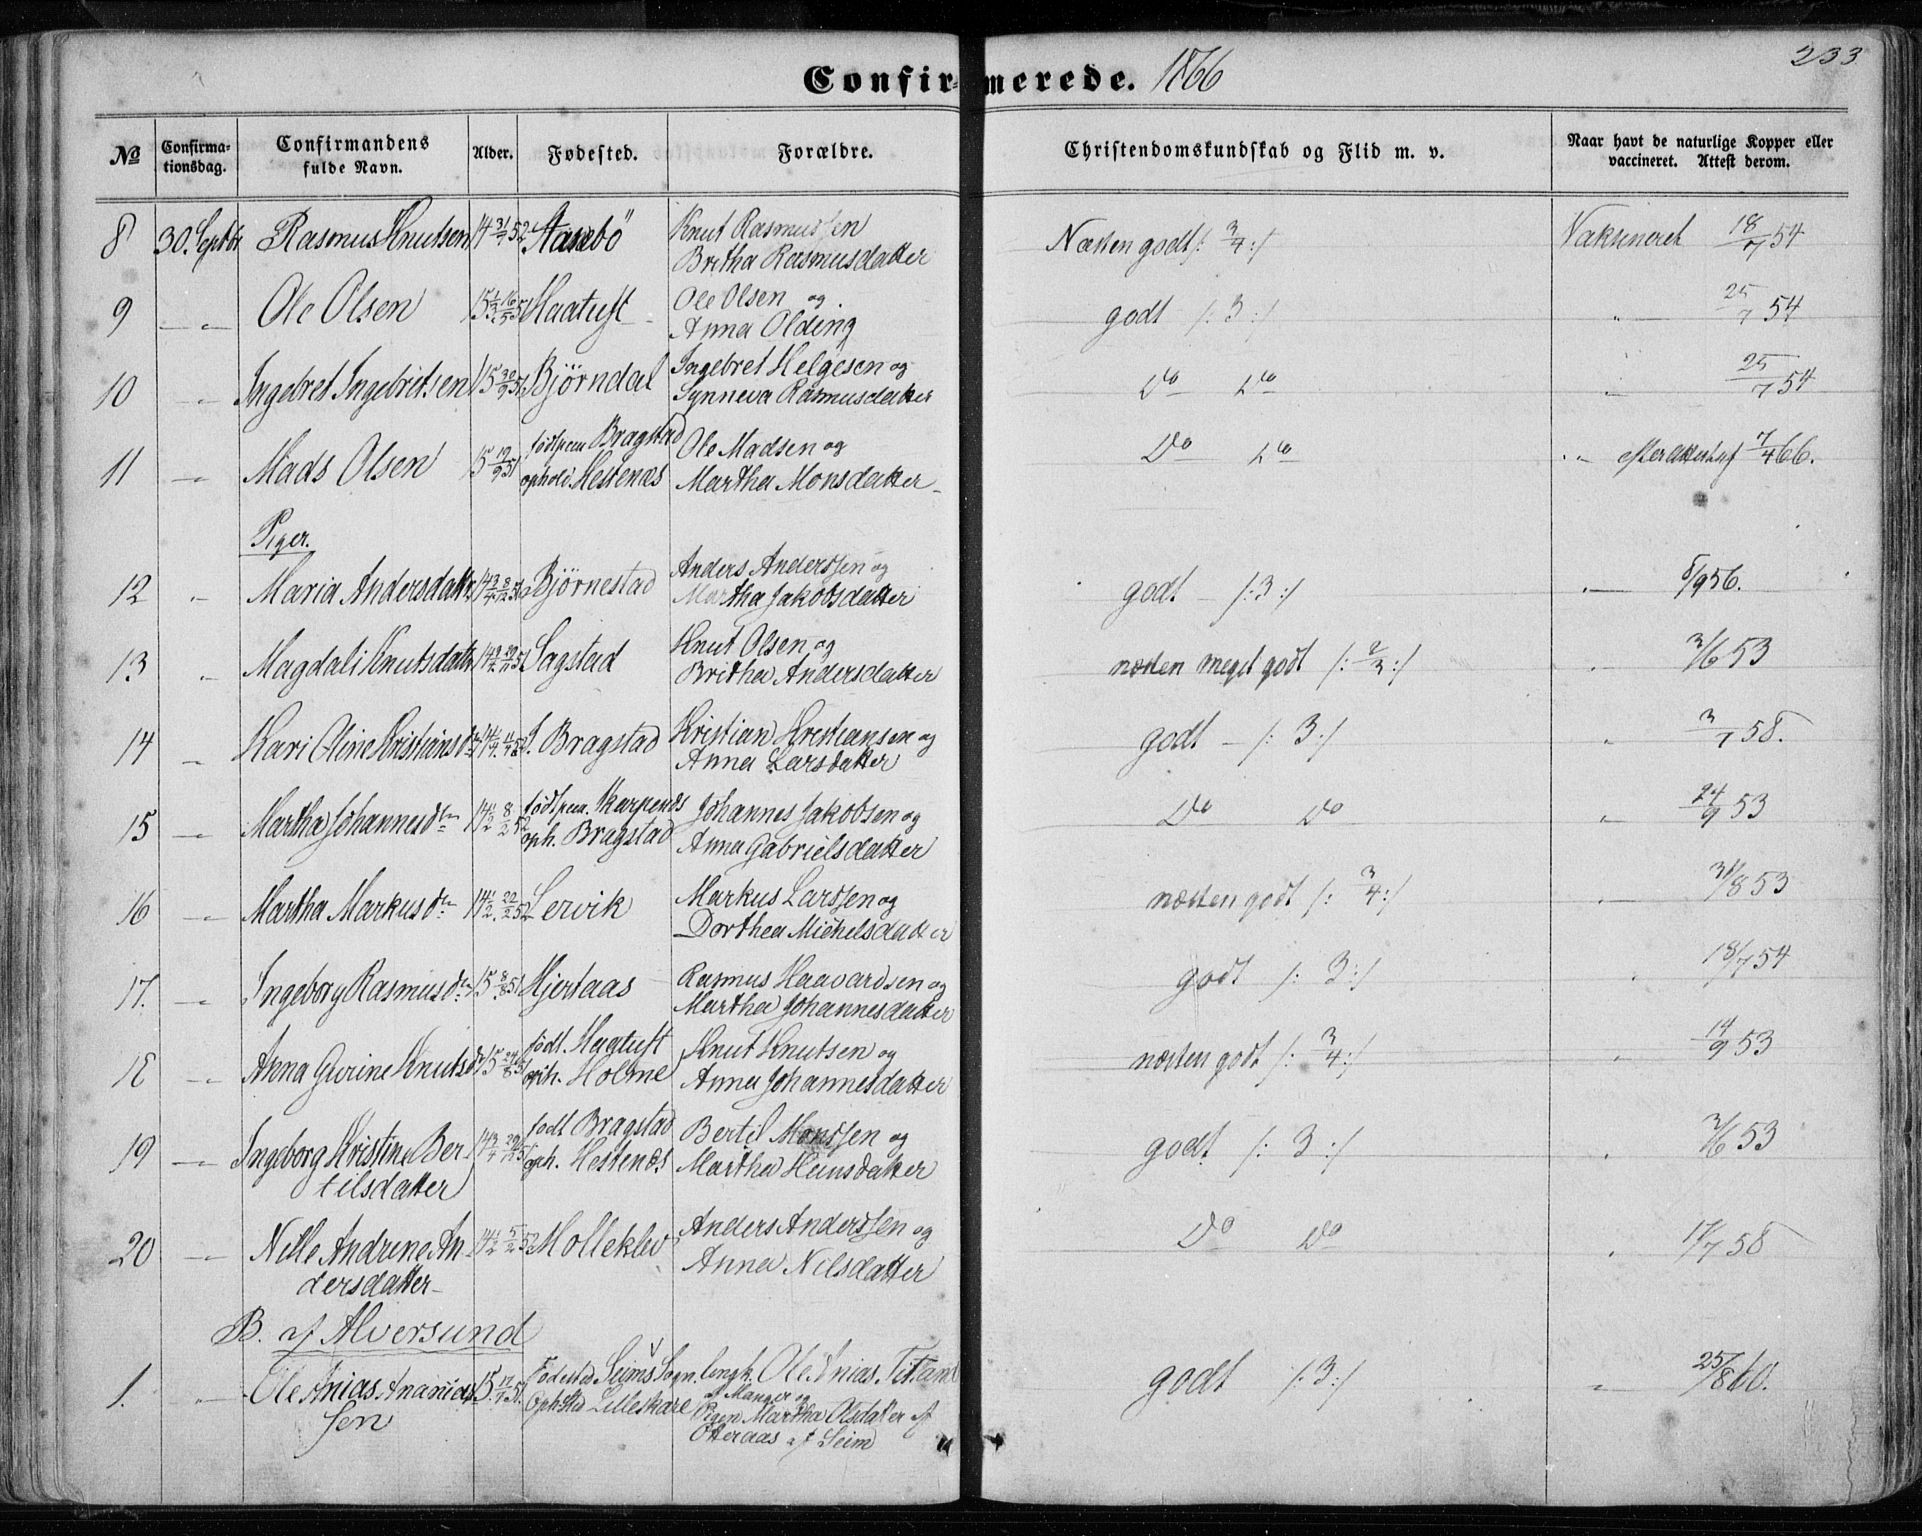 Confirmerede. 1866
233
No
Confirmationsdag.
Confirmandens fulde Navn.
Alder.
Fødested.
Forældre.
Christendomskundskab og Flid m. v.
Naar havt de naturlige Kopper eller vaccineret. Attest derom.
8 30. Septbr Rasmus Knutsen 14 31/7 52 Knut Rasmussen Næsten godt /: 3/4 :/ Vaksineret 18/7 54
Britha Rasmusdatter
9 — " — Ole Olsen 15 1/3 16/5 51 Haatuft Ole Olsen og godt /: 3 :/ " 25/7 54
Anna Olding
10 " Ingebret Ingebritsen 15 30/9 51 Bjørndal Ingebret Helgesen og Do Do " 25/7 54
Synneva Rasmusdatter
11 — " — Mads Olsen 15 19/9 51 født paa Bragstad Ole Madsen og Do Do " efter Attest af 7/4 66.
ophold Hestenæs Martha Monsdatter
Piger.
12 " Maria Andersdattr 14 3/4 8/12 51 Bjørnestad Anders Anderssen og godt /: 3 :/ " 5/9 56.
Martha Jakobsdatter
13 " Magdali Knutsdattr 14 3/4 29/11 51 Sagstad Knut Olsen og næsten meget godt /: 2/3 :/ " 2/6 53
Britha Andersdatter
14 " Kari Oline Kristiansdr 14 1/4 52 S. Bragstad Kristian Kristiansen og godt — /: 3 :/ " 3/7 58.
Anna Larsdatter
15 — " — Martha Johannesdtr 14 1/2 8/2 52 født paa Skarpenæs Johannes Jakobsen og Do Do " 24/9 53
oph. Bragstad Anna Gabrielsdatter
16 — " — Martha Markusdtr 14 1/2 22/2 52 Lervik Markus Larssen og næsten godt /: 3/4 :/ " 31/8 53
Dorthea Michelsdatter
17. — " — Ingeborg Rasmusdtr 15 8/8 51 Hjertaas Rasmus Haavardsen og godt /: 3 :/ " 18/7 54
Martha Johannesdatter
18 — " — Anna Gurine Knutsdr 15 24/8 51 født. Haatuft Knut Knutsen og næsten godt /: 3/4 :/ " 14/9 53
oph. Holme Anna Johannesdatter
19 — " — Ingeborg Kristine Ber 14 3/4 29/11 51 født Bragstad Bertil Monssen og godt /: 3 :/ " 2/6 53
tilsdatter oph. Hestenæs Martha Hansdatter
20 — " — Nille Andrine An 14 1/2 5/2 52 Molleklev Anders Anderssen og Do Do " 17/7 58
dersdatter Anna Nilsdatter
B. af Alversund
1. " Ole Anias Ananias 15 17/7 51. Fødested Seims Sogn. Ungk. Ole Anias Titland godt /: 3 :/ " 25/8 60.
sen Oph.sted Lilleskare af Manger og
Pigen Martha Olsdatter af
Otteraas af Seim